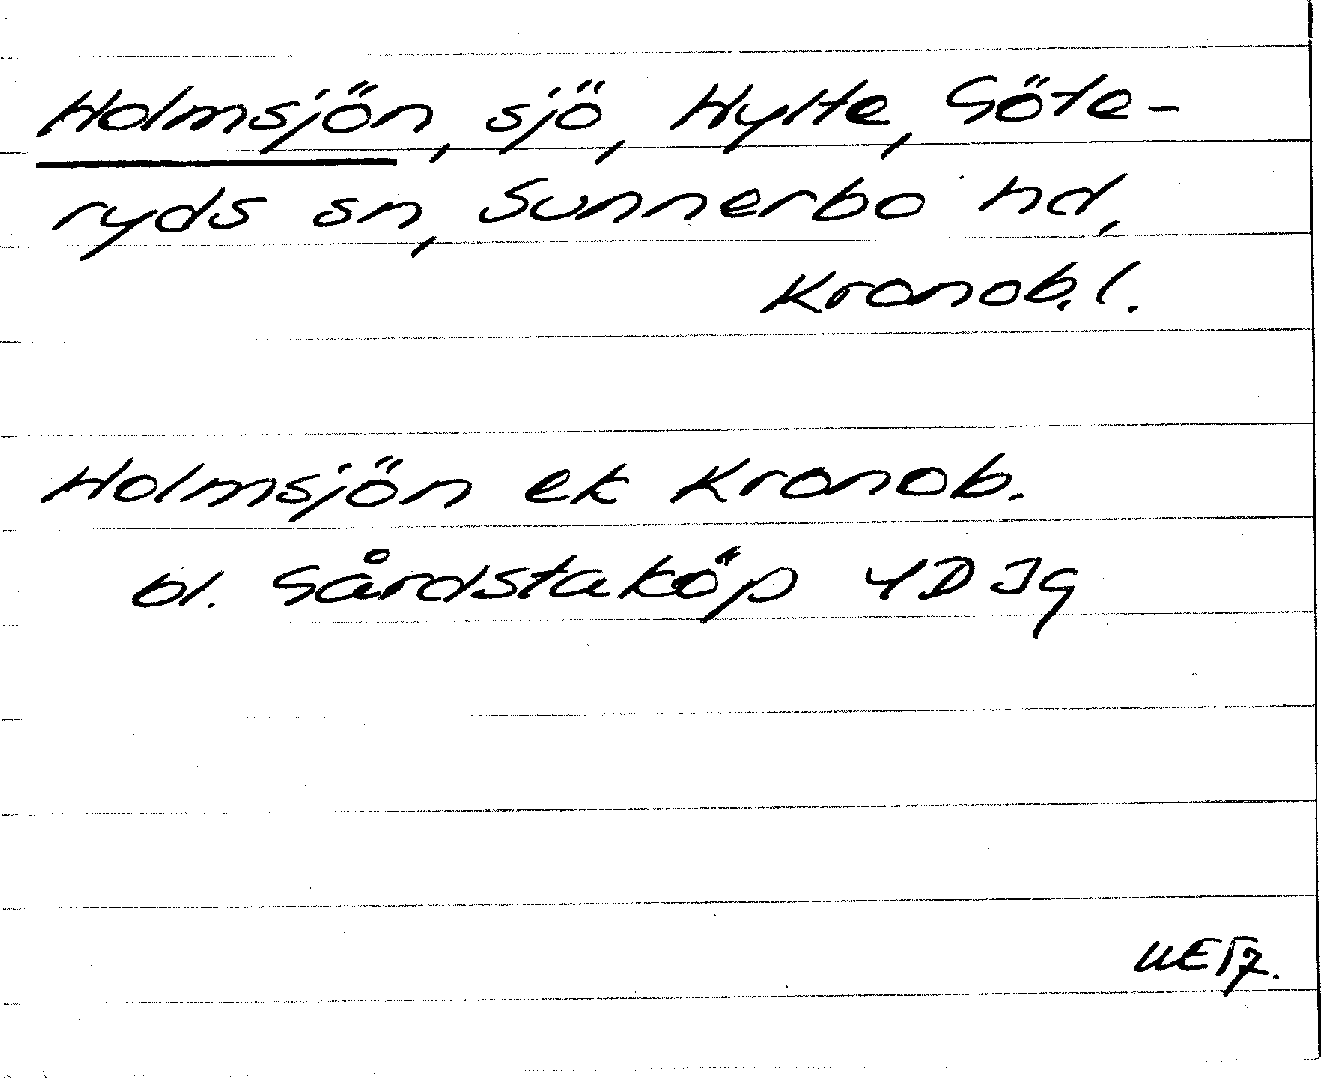 Holmsjön, sjö, Hylte, Göte-
ryds sn, Sunnerbo hd,
Kronob. l.
Holmsjön ek Kronob.
bl. Gårdstaköp 4D Ig